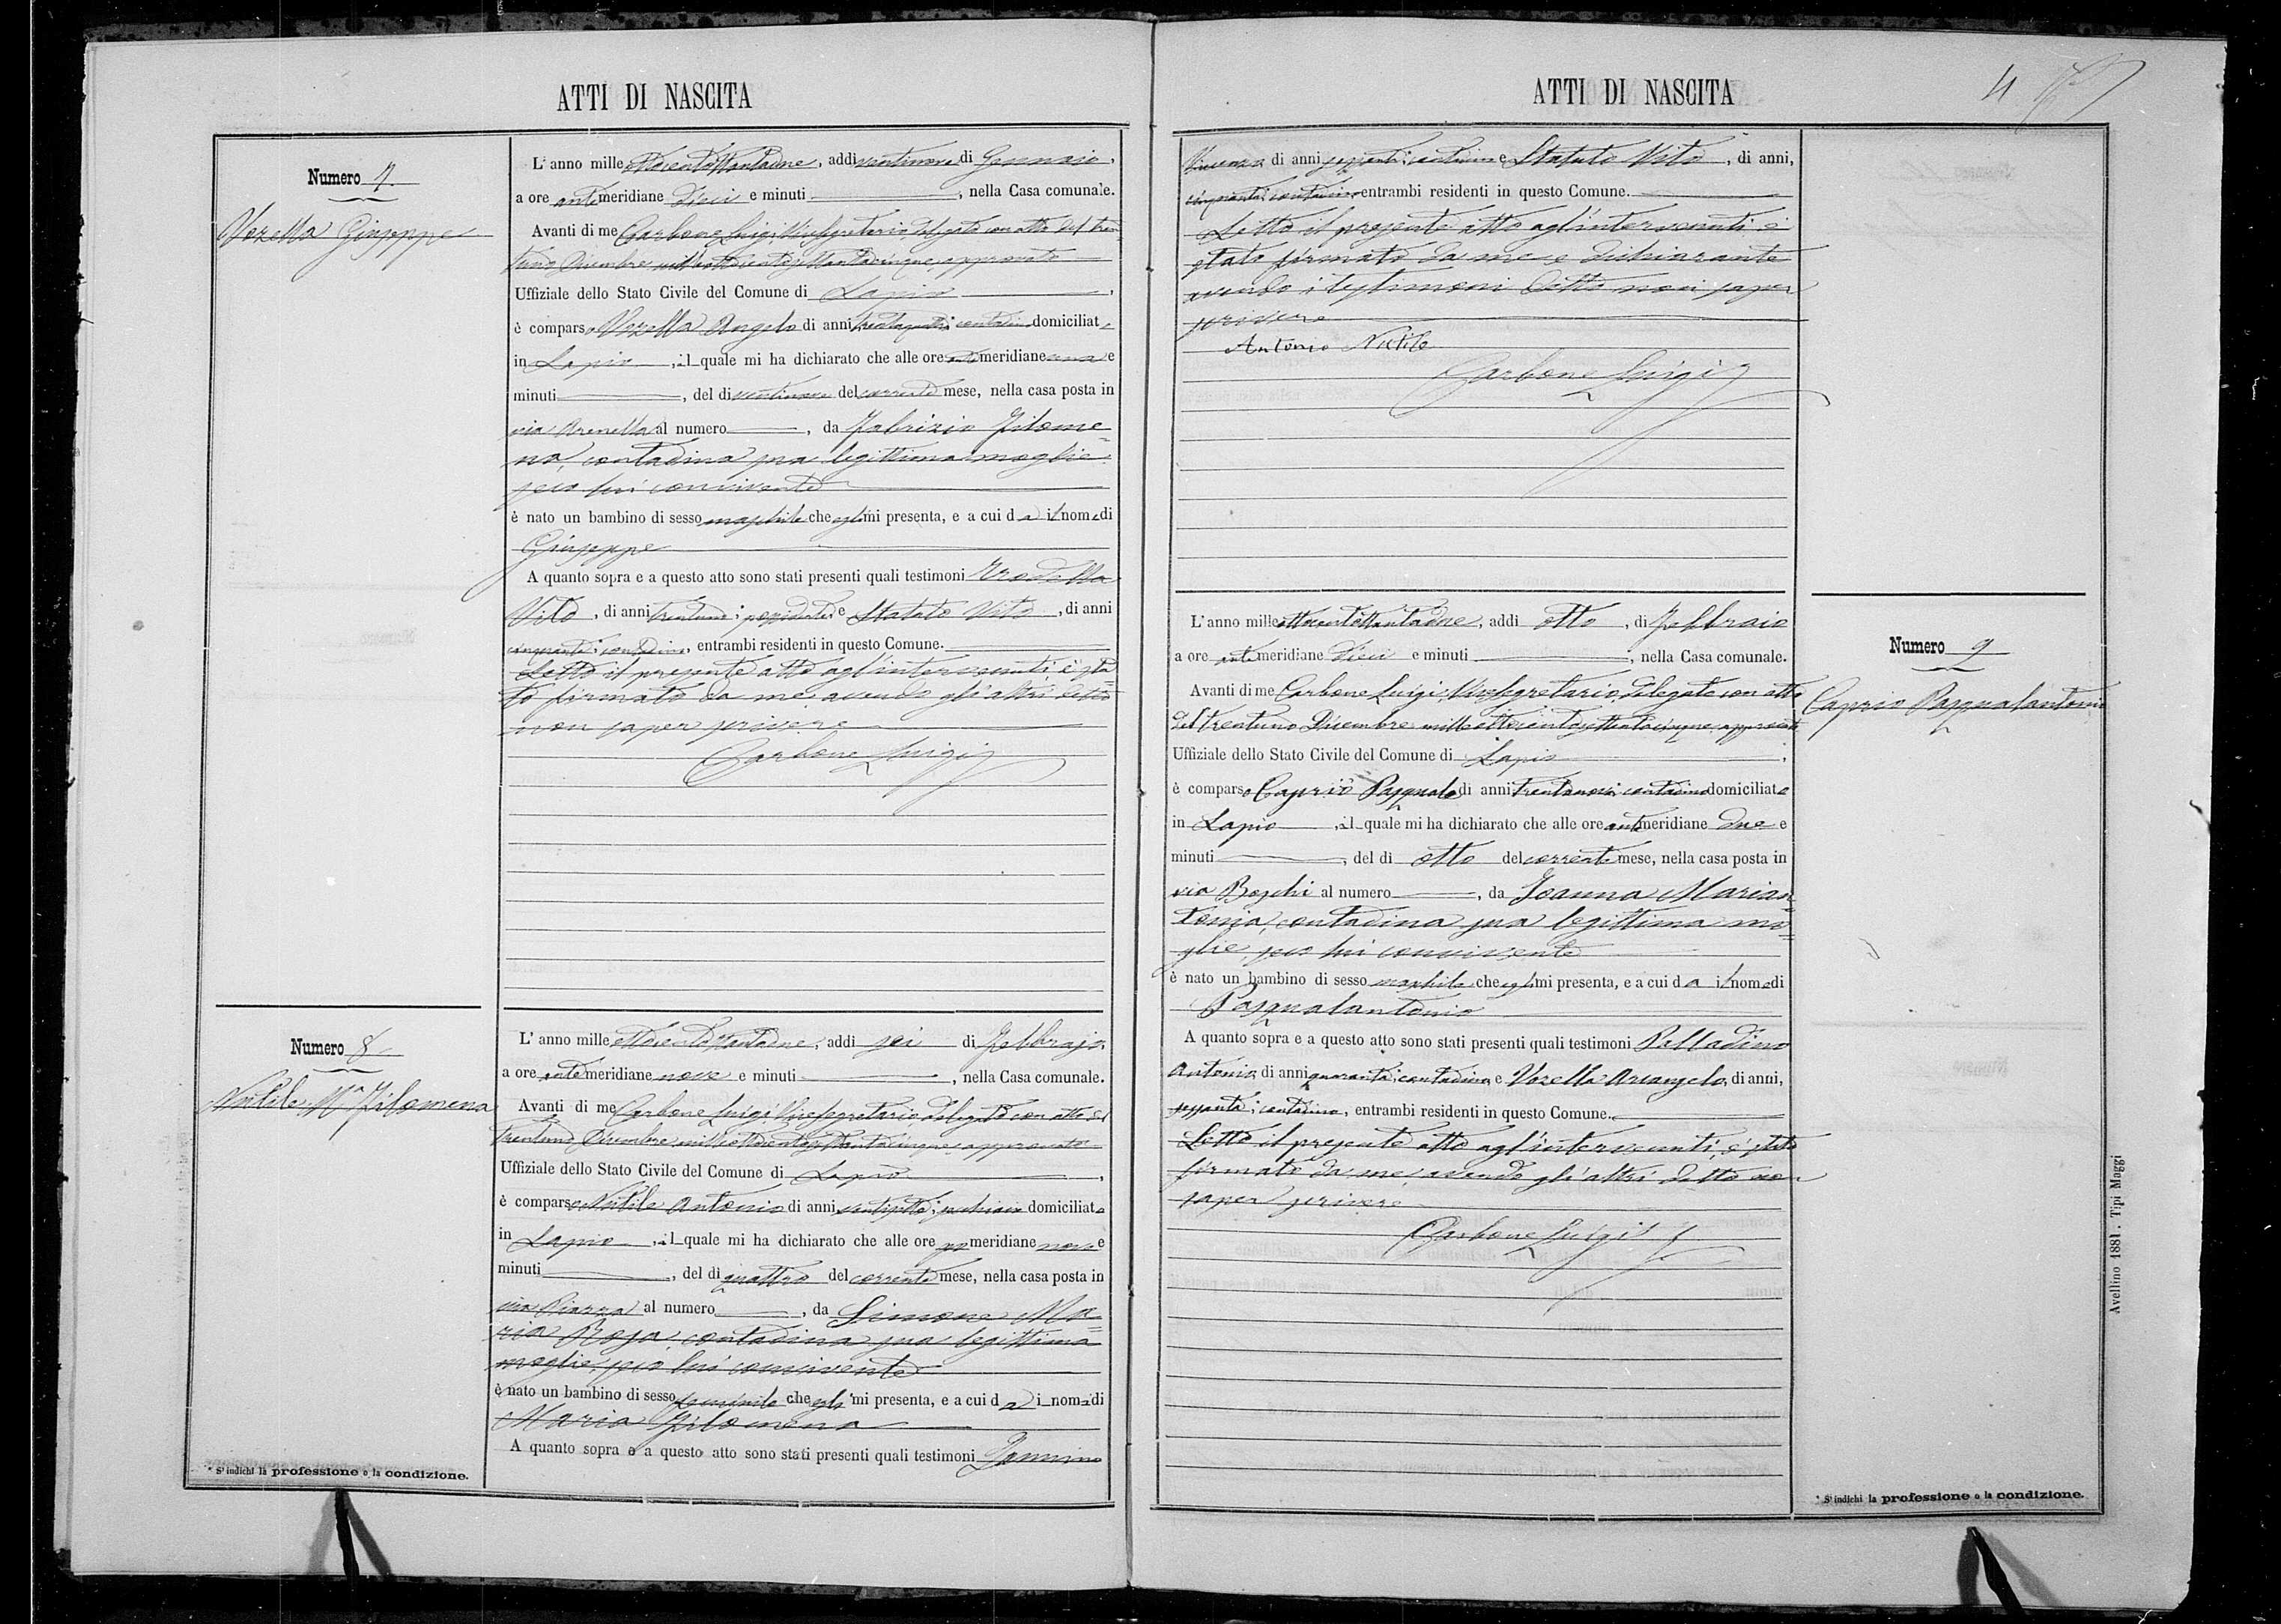 ATTI DI NASCITA
Numero 7.
Vozella Giuseppe
L'anno milleottocentottantadue, addi ventinove di Gennaio,
a ore antimeridiane dieci e minuti, nella Casa comunale.
Avanti di me Carbone Luigi, Vicesegretario delegato con atto del tren
tuno Dicembre milleottocentosettantacinque, approvato
Uffiziale dello Stato Civile del Comune di Lapio,
è comparso Vozella Angelo di anni contadino domiciliato
in Lapio, il quale mi ha dichiarato che alle ore meridiane una e
minuti, del dì ventinove del corrente mese, nella casa posta in
via Arenella al numero, da Fabrizio Filome=
na, contadina sua legittima moglie
seco lui convivente
è nato un bambino di sesso maschile che egli mi presenta, e a cui dà il nome di
Giuseppe
A quanto sopra e a questo atto sono stati presenti quali testimoni
Vito, di anni trentuno, possidente e Statuto Vito, di anni
cinquanta, contadino, entrambi residenti in questo Comune.
Letto il presente atto agl'intervenuti, è sta=
to firmato da me, avendo gli altri detto
non saper scrivere
Carbone Luigi
Numero 8
Nittile Mª Filomena
L'anno milleottocentottantadue, addi sei di Febbrajo,
a ore antimeridiane nove e minuti, nella Casa comunale.
Avanti di me Carbone Luigi, Vicesegretario delegato con atto del
trentuno Dicembre milleottocentosettantacinque, approvato
Uffiziale dello Stato Civile del Comune di Lapio,
è comparso Nittile Antonio di anni ventisette, domiciliato
in Lapio, il quale mi ha dichiarato che alle ore pomeridiane nove e
minuti, del dì quattro del corrente mese, nella casa posta in
via Piazza al numero, da Simone Ma=
ria Rosa, contadina sua legittima
moglie, seco lui convivente
è nato un bambino di sesso feminile che egli mi presenta, e a cui dà i nomi di
Maria Filomena
A quanto sopra e a questo atto sono stati presenti quali testimoni
* Si indichi la professione o la condizione.
ATTI DI NASCITA
4
Vincenzo di anni sessanta, contadino e Statuto Vito, di anni,
cinquanta, contadino entrambi residenti in questo Comune.
Letto il presente atto agl'intervenuti, è
stato firmato da me e dichiarante
avendo i testimoni detto non saper
scrivere
Antonio Nittile
Carbone Luigi
Numero 9
Caprio Pasqualantonio
L'anno milleottocentottantadue, addi otto, di Febbraio
a ore antimeridiane dieci e minuti, nella Casa comunale.
Avanti di me Carbone Luigi, Vicesegretario, delegato con atto
del trentuno Dicembre milleottocentosettantacinque, approvato
Uffiziale dello Stato Civile del Comune di Lapio,
è comparso Caprio Pasquale di anni trentanove, contadino domiciliato
in Lapio, il quale mi ha dichiarato che alle ore antimeridiane due e
minuti, del dì otto del corrente mese, nella casa posta in
via Boschi al numero, da Joanna Marian=
tonia, contadina sua legittima mo=
glie, seco lui convivente
è nato un bambino di sesso maschile che egli mi presenta, e a cui dà il nome di
Pasqualantonio
A quanto sopra e a questo atto sono stati presenti quali testimoni Palladino
Antonio di anni quaranta, contadino, e Vozella Arcangelo, di anni,
sessanta, contadino, entrambi residenti in questo Comune.
Letto il presente atto agl'intervenuti, è stato
firmato da me, avendo gli altri detto non
saper scrivere
Carbone Luigi
* Si indichi la professione o la condizione.
Avellino 1881. Tipi Maggi